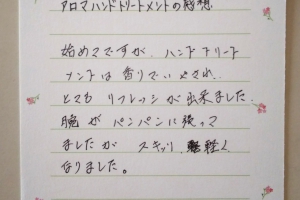 アロマハンドトリートメントの感想
始めてですが、ハンドトリート
メントは香りでいやされ、
とてもリフレッシュが出来ました。
腕がパンパンに張って
ましたが スキッリ 軽く
なりました。